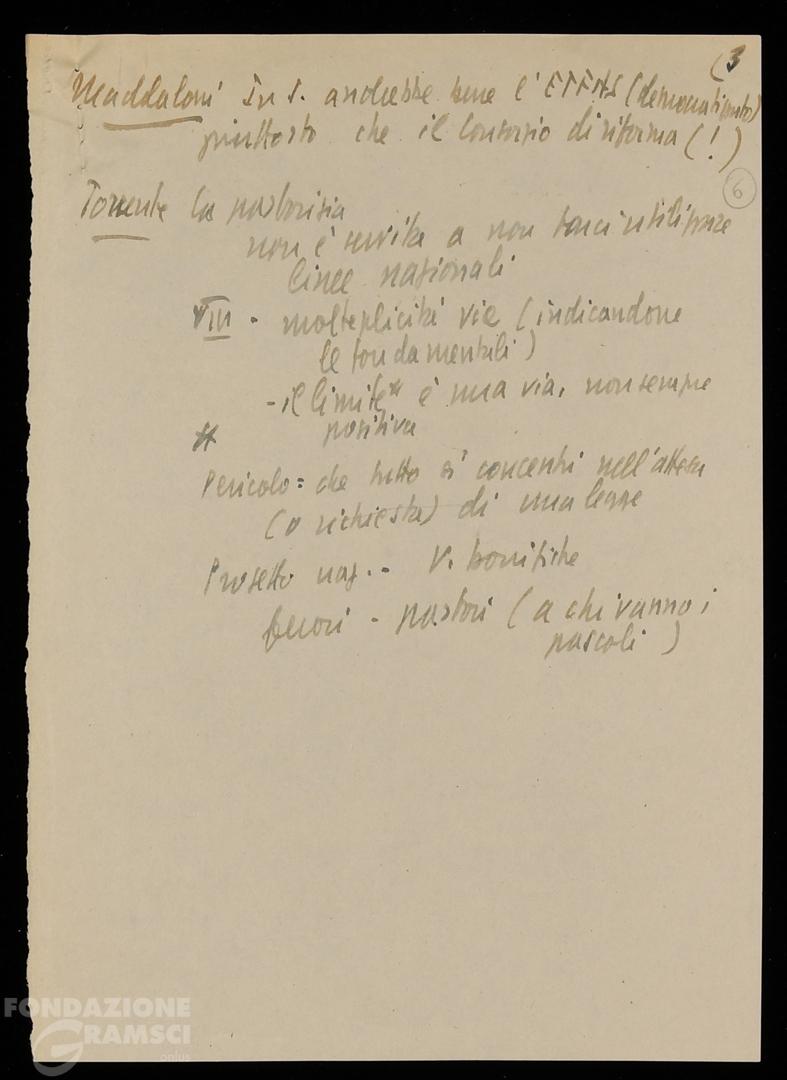 (3
Maddaloni In S. andrebbe bene l'ETFAS (democratizzato)
piuttosto che il Consorzio di riforma (!)
6
Torrente La pastorizia
non è servita a non farci utilizzare
linee nazionali
VIII - molteplicità vie (indicandone
le fondamentali)
- il limite* è una via, non sempre
positiva
*
Pericolo = che tutto si concentri nell'attesa
(o richiesta) di una legge
Progetto naz. - V. bonifiche
- pastori (a chi vanno i
pascoli)
FONDAZIONE
GRAMSCI
onlus